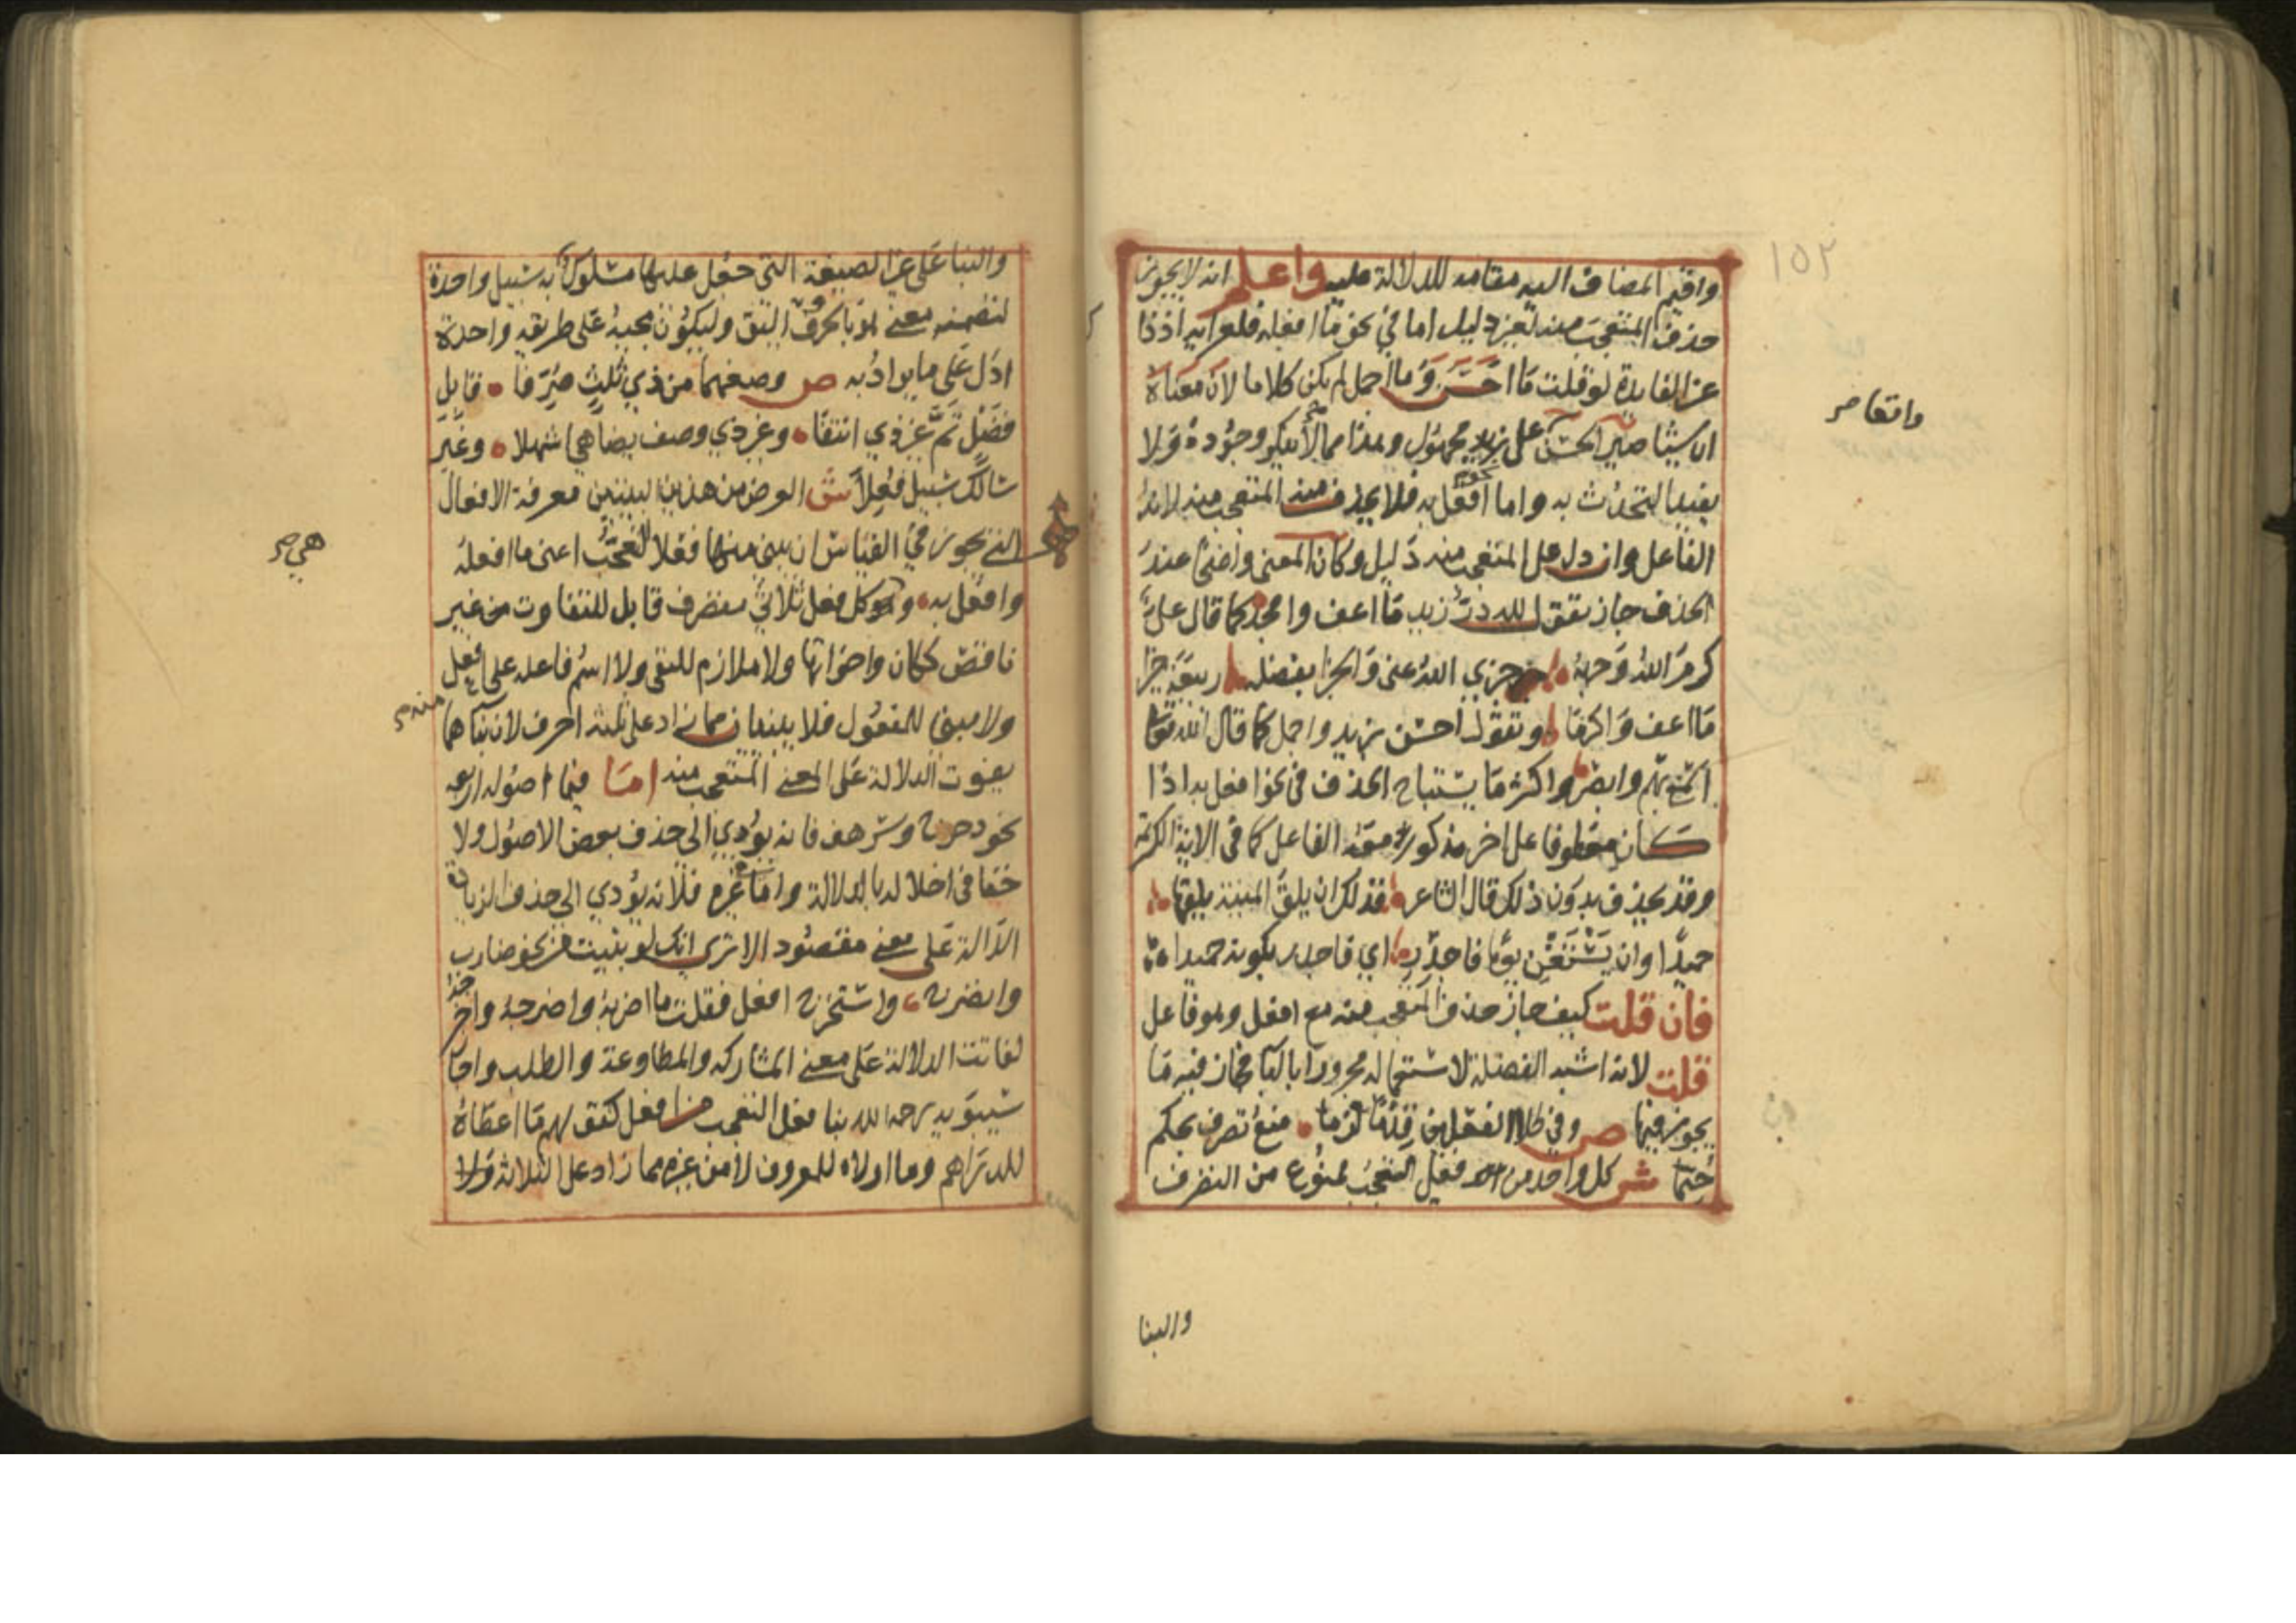 ١٥٢
واقيم المضاف اليه مقامه للدلالة عليه واعلم انه لايجوز
حذف المتعجب منه لغير دليل اما في نحو ما افعله فلعرايه اذ ذا
عن الفايدة لو قلت ما احسن وما اجمل لم يكن كلاما لان معناه
ان شيئا صير الحسن على مجهول وهذا مما لا ينكر وجوده ولا
يفيد التحدث به واما افعل به فلا يحذف منه المتعجب منه لانه
الفاعل وان دل على المتعجب منه دليل وكان المعنى واضحا عند
الحذف جاز تقول لله در زيد ما اعف وامجد كما قال علي
كرم الله وجهه جزى الله عني والجزا بفضله ربيعة خيرا
ما اعف واكرما وتقول احسن بزيد واجمل كما قال الله تعالى
اسمع بهم وابصر واكثر ما يستباح الحذف في نحو افعل به اذا
كان معطوفا على اخر مذكور معه الفاعل كما في الاية الكريمة
وقد يحذف بدون ذلك قال الشاعر فذلك ان يلق المنية يلقها
حميدا وان يستغن يوما فاجدر اي فاجدر بكونه حميدا
فان قلت كيف جاز حذف المتعجب منه مع افعل وهو فاعل
قلت لانه اشبه الفضلة لاستعماله مجرورا بالبا فجاز فيه ما
يجوز فيها ص وفي كلا الفعلين قدما لزما منع تصرف بحكم
حتما ش كل واحد من فعلي التعجب ممنوع من التصرف
والبنا
والبنا على غير الصيغة التي جعل عليها مسلوك به سبيل واحدة
لتضمنه معنى هو بالحروف اليق وليكون مجيئه على طريقة واحدة
ادل على ما يراد به ص وصغهما من ذي ثلث صرفا قابل
فضل تم غير ذي انتفا وغير ذي وصف يضاهي اشهلا وغير
سالك سبيل فعلا ش الغرض من هذين البيتين معرفة الافعال
التي يجوز في القياس ان يبنى منها فعلا التعجب اعني ما افعله
وافعل به وهو كل فعل ثلاثي متصرف قابل للتفاوت من غير
ناقص ككان واخواتها ولا ملازم للنفي ولا اسم فاعله على افعل
ولا مبني للمفعول فلا يبنيان مما زاد على ثلثة احرف لان بناهما
منه
يفوت الدلالة على المعنى المتعجب منه اما فيما اصوله اربعة
نحو دحرج وسرهف فانه يودي الى حذف بعض الاصول ولا
خفا في اخلاله بالدلالة واما غيره فلانه يودي الى حذف الزيادة
الدالة على معنى مقصود الا ترى انك لو بنيت من نحو ضارب
وانضرج واستخرج افعل فقلت ما اضربه واضرجه واخرجه
لفاتت الدلالة على معنى المشاركة والمطاوعة والطلب واجاز
سيبويه رحمه الله بنا فعل التعجب من افعل كقولهم ما اعطاه
للدراهم وما اولاه للمعروف لا من غيره مما زاد على الثلاثة ولا